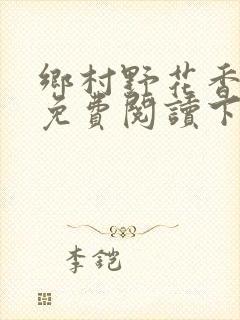 鄉村野花香
免費閱讀下
李鎧